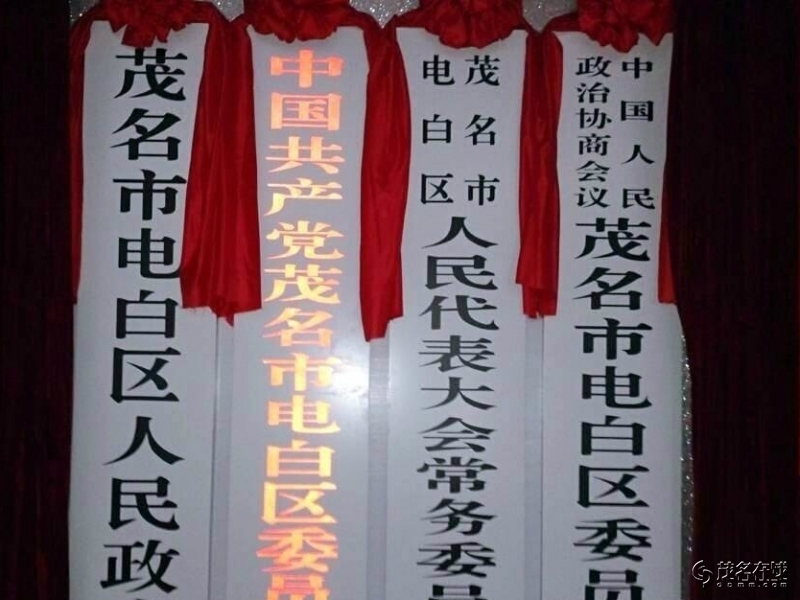 茂名市电白区人民政
中国共产党茂名市电白区委员
茂名市
电白区
人民代表大会常务委员
中国人民
政治协商会议
茂名市电白区委员
茂名在线